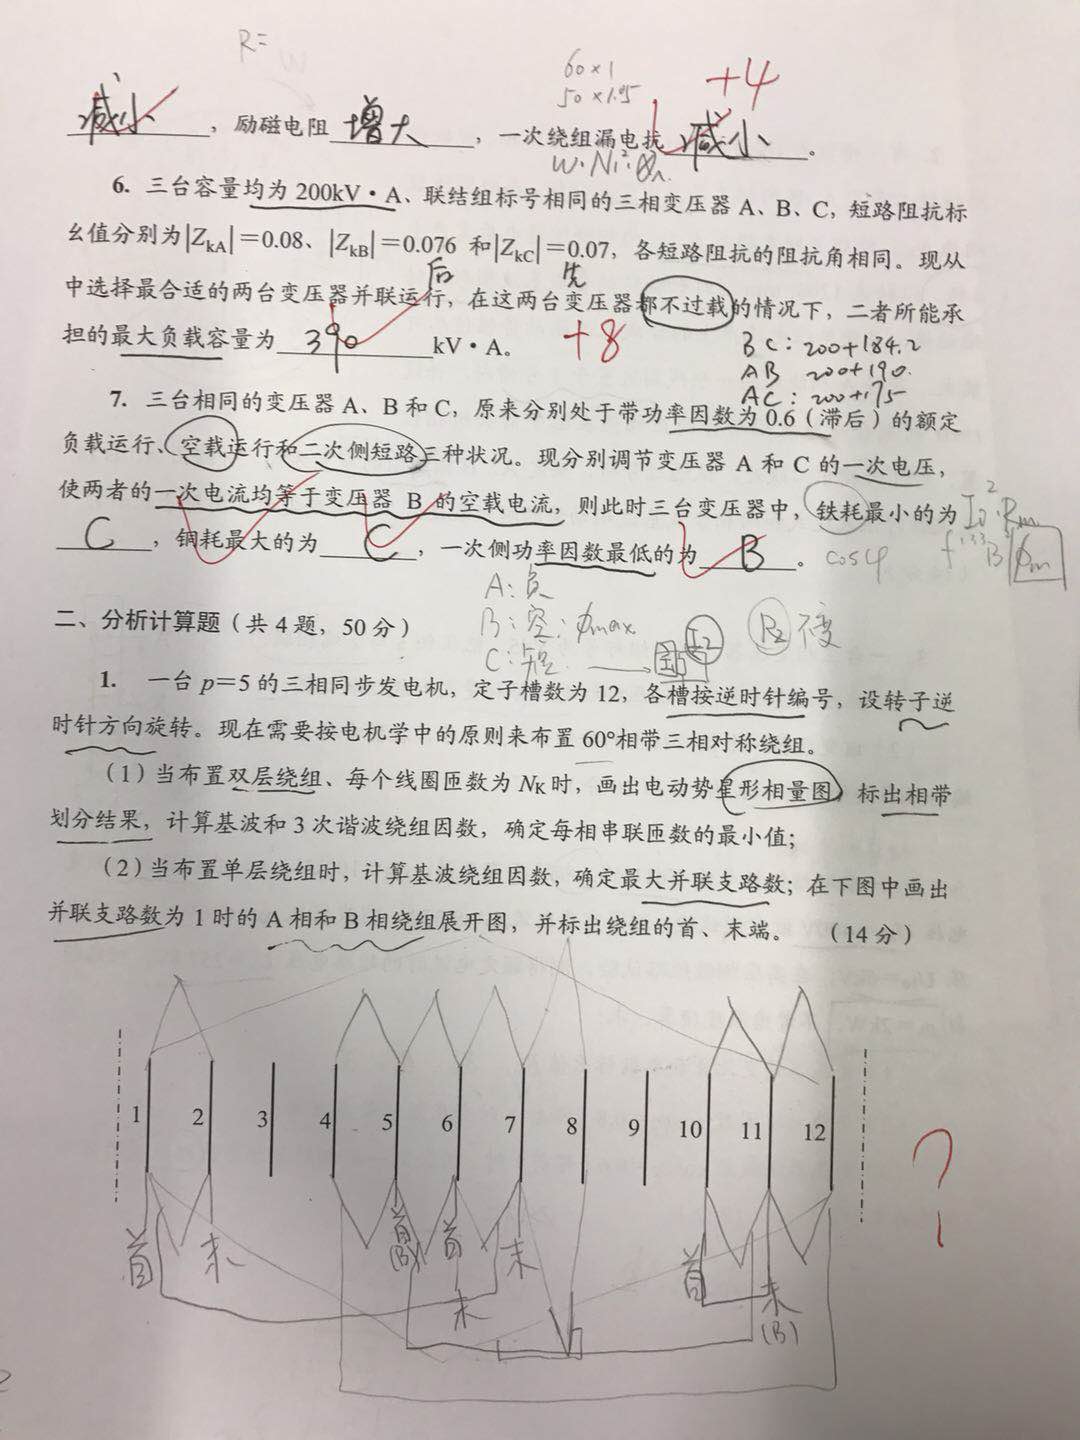 R=
60×1
50×1.05
+4
减小，励磁电阻增大，一次绕组漏电抗减小。
6. 三台容量均为 200kV·A、联结组标号相同的三相变压器 A、B、C，短路阻抗标
幺值分别为|ZkA|=0.08、|ZkB|=0.076 和|ZkC|=0.07，各短路阻抗的阻抗角相同。现从
后 先
中选择最合适的两台变压器并联运行，在这两台变压器都不过载的情况下，二者所能承
担的最大负载容量为390kV·A。
+8
BC: 200+184.2
AB 200+190.
AC: 200+175
7. 三台相同的变压器 A、B 和 C，原来分别处于带功率因数为 0.6（滞后）的额定
负载运行、空载运行和二次侧短路三种状况。现分别调节变压器 A 和 C 的一次电压，
使两者的一次电流均等于变压器 B 的空载电流，则此时三台变压器中，铁耗最小的为
C，铜耗最大的为C，一次侧功率因数最低的为B。
cosφ
A:负
B:空:ϕmax
C:短
R2 不变
二、分析计算题（共 4 题，50 分）
1. 一台 p=5 的三相同步发电机，定子槽数为 12，各槽按逆时针编号，设转子逆
时针方向旋转。现在需要按电机学中的原则来布置 60°相带三相对称绕组。
（1）当布置双层绕组、每个线圈匝数为 NK 时，画出电动势星形相量图，标出相带
划分结果，计算基波和 3 次谐波绕组因数，确定每相串联匝数的最小值；
（2）当布置单层绕组时，计算基波绕组因数，确定最大并联支路数；在下图中画出
并联支路数为 1 时的 A 相和 B 相绕组展开图，并标出绕组的首、末端。（14 分）
1 2 3 4 5 6 7 8 9 10 11 12
?
首 末 首(B) 首 末 首 末(B)
末